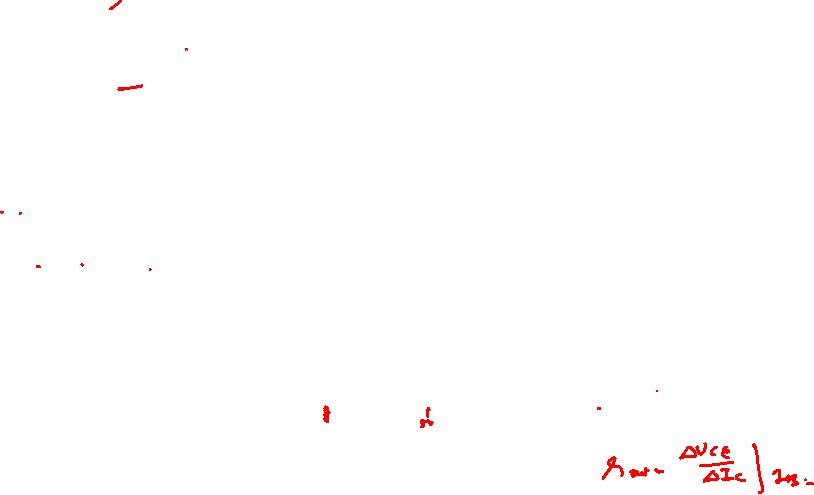 r out = ΔVCE / ΔIC |